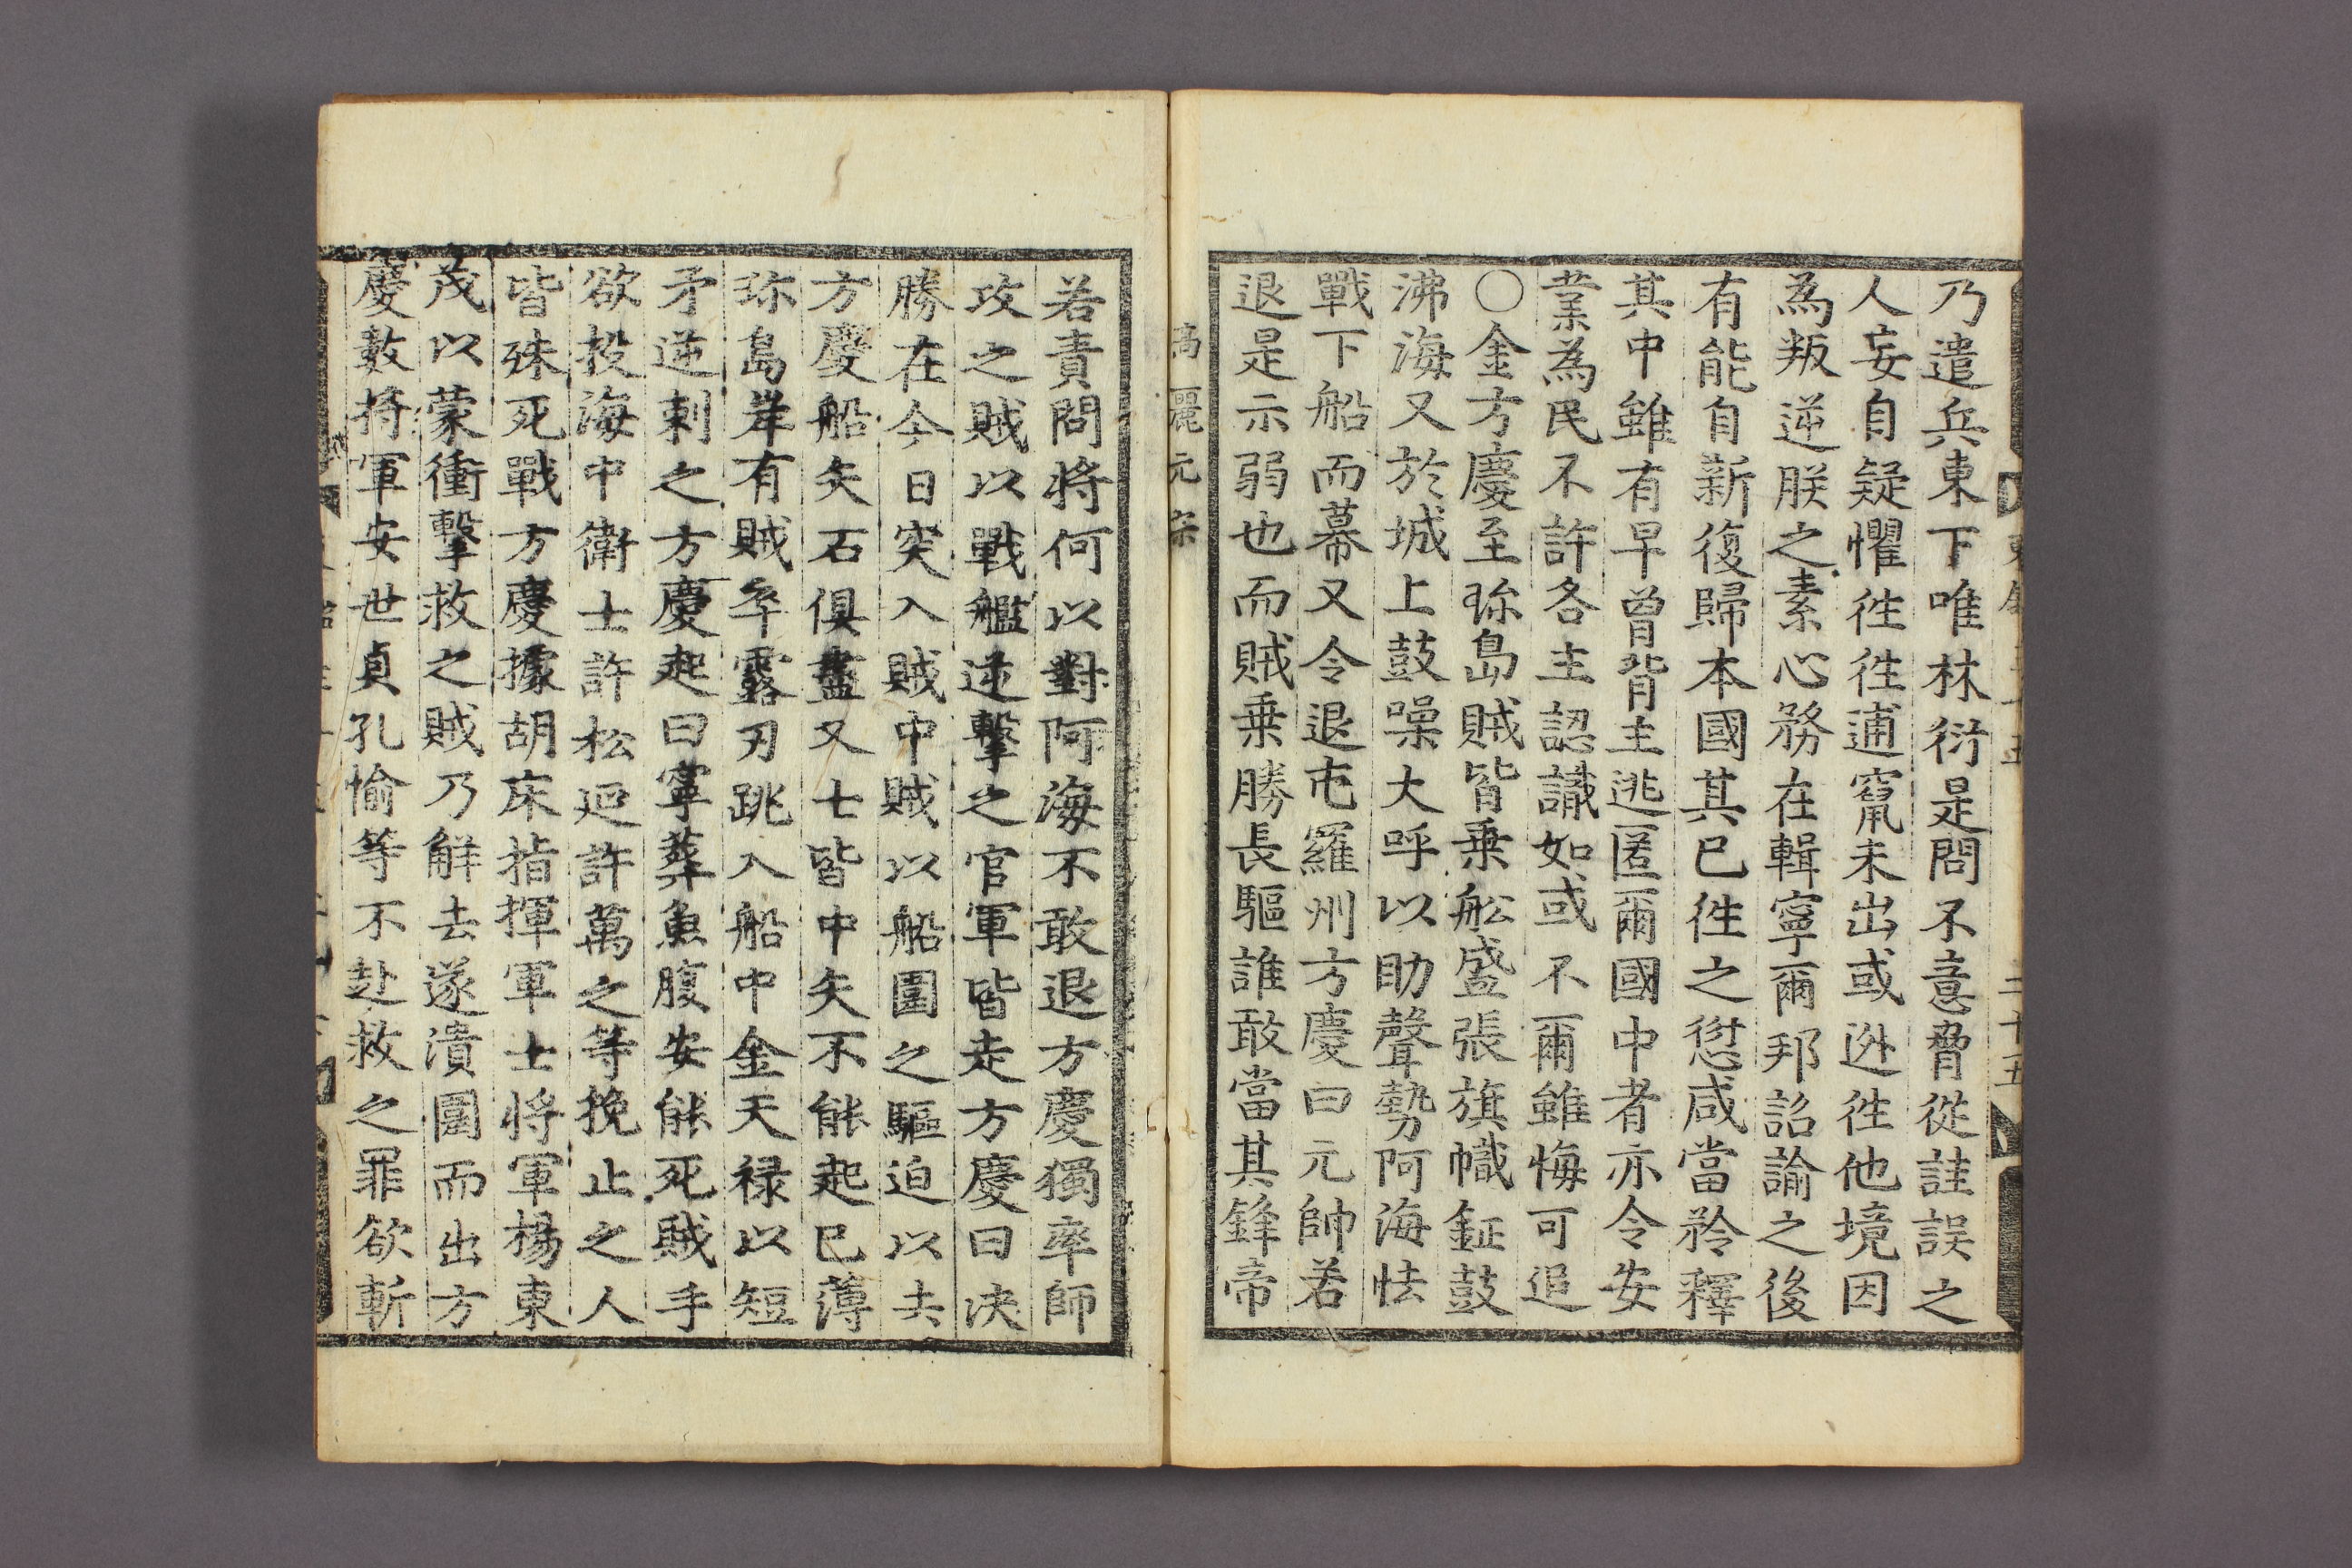 乃遣兵東下唯林衍是問不意脅從註誤之
人妄自疑懼徃徃逋竄未出或迯徃他境因
為叛逆朕之素心務在輯寧爾邦詔諭之後
有能自新復歸本國其已徃之愆咸當矜釋
其中雖有早曾背主逃匿爾國中者亦令安
業為民不許各主認識如或不爾雖悔可追
○金方慶至珎島賊皆乗舩盛張旗幟鉦鼓
沸海又於城上鼓噪大呼以助聲勢阿海怯
戰下船而幕又令退屯羅州方慶曰元帥若
退是示弱也而賊乗勝長驅誰敢當其鋒帝
高麗元宗
若責問將何以對阿海不敢退方慶獨率師
攻之賊以戰艦逆擊之官軍皆走方慶曰决
勝在今日突入賊中賊以船圍之驅迫以去
方慶船矢石俱盡又士皆中矢不能起已薄
珎島岸有賊卒露刃跳入船中金天禄以短
矛逆刺之方慶起曰寧葬魚腹安能死賊手
欲投海中衛士許松廷許萬之等挽止之人
皆殊死戰方慶據胡床指揮軍士將軍楊東
茂以蒙衝擊救之賊乃解去遂潰圍而出方
慶數將軍安世貞孔愉等不赴救之罪欲斬